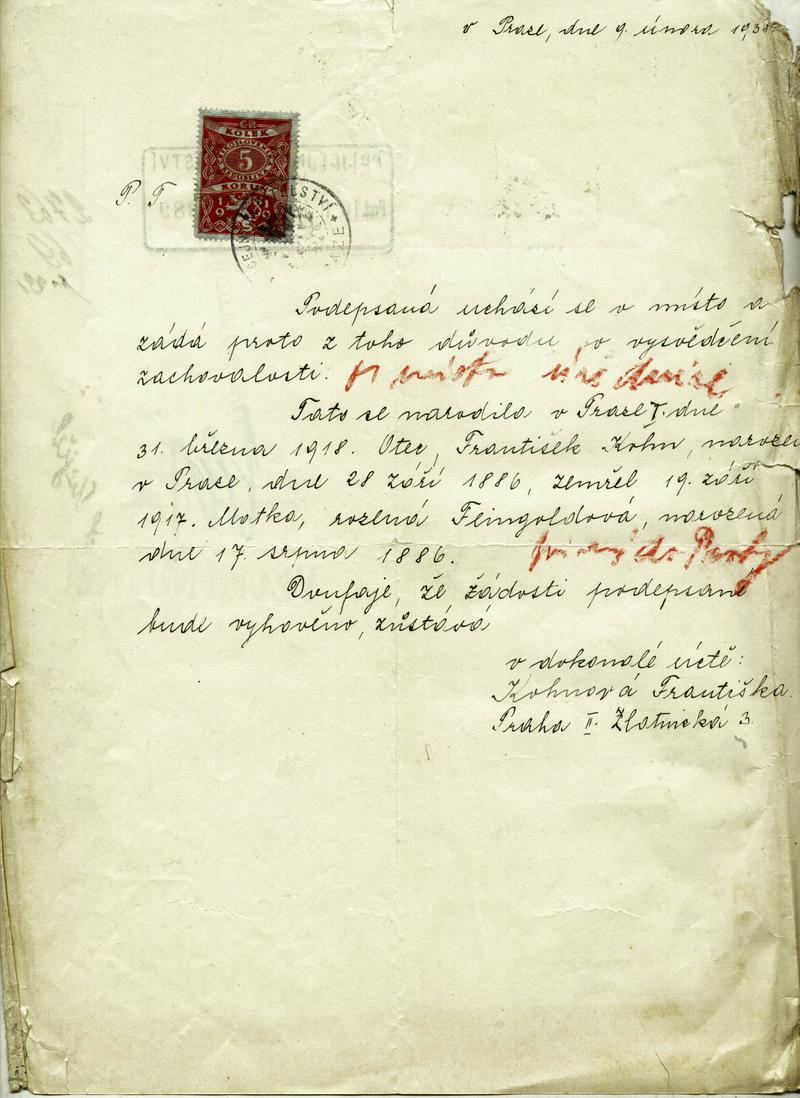 v Praze, dne 9. února 1938
ČR
KOLEK
5
KORUN
1919
P. T.
Podepsaná uchází se o místo a
žádá proto z toho důvodu, o vysvědčení
zachovalosti.
Tato se narodila v Praze I. dne
31. března 1918. Otec, František Kohn, narozen
v Praze, dne 28 září 1886, zemřel 19. září
1917. Matka, rozená Feingoldová, narozená
dne 17. srpna 1886.
Doufaje, že žádosti podepsané
bude vyhověno, zůstává
v dokonalé úctě:
Kohnová Františka.
Praha II. Zlatnická 3.